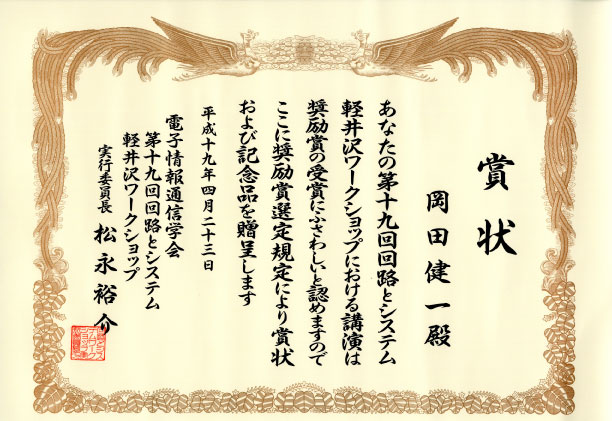 賞状
岡田健一殿
あなたの第十九回回路とシステム
軽井沢ワークショップにおける講演は
奨励賞の受賞にふさわしいと認めますので
ここに奨励賞選定規定により賞状
および記念品を贈呈します
平成十九年四月二十三日
電子情報通信学会
第十九回回路とシステム
軽井沢ワークショップ
実行委員長 松永裕介